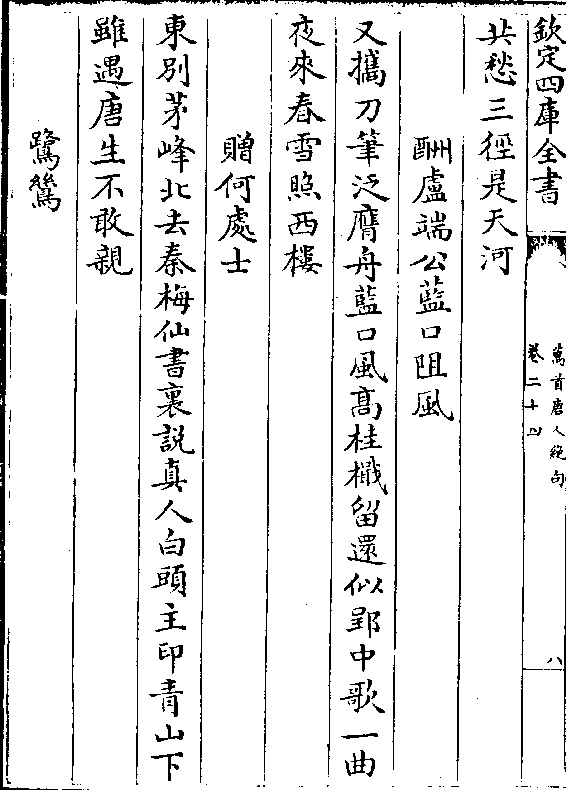 欽定四庫全書
萬首唐人絶句
卷二十四
八
共愁三徑是天河
酬盧端公藍口阻風
又攜刀筆泛膺舟藍口風髙桂檝留還似郢中歌一曲
夜來春雪照西樓
贈何處士
東別茅峰北去秦梅仙書裏説真人白頭主印青山下
雖遇唐生不敢親
鷺鷥